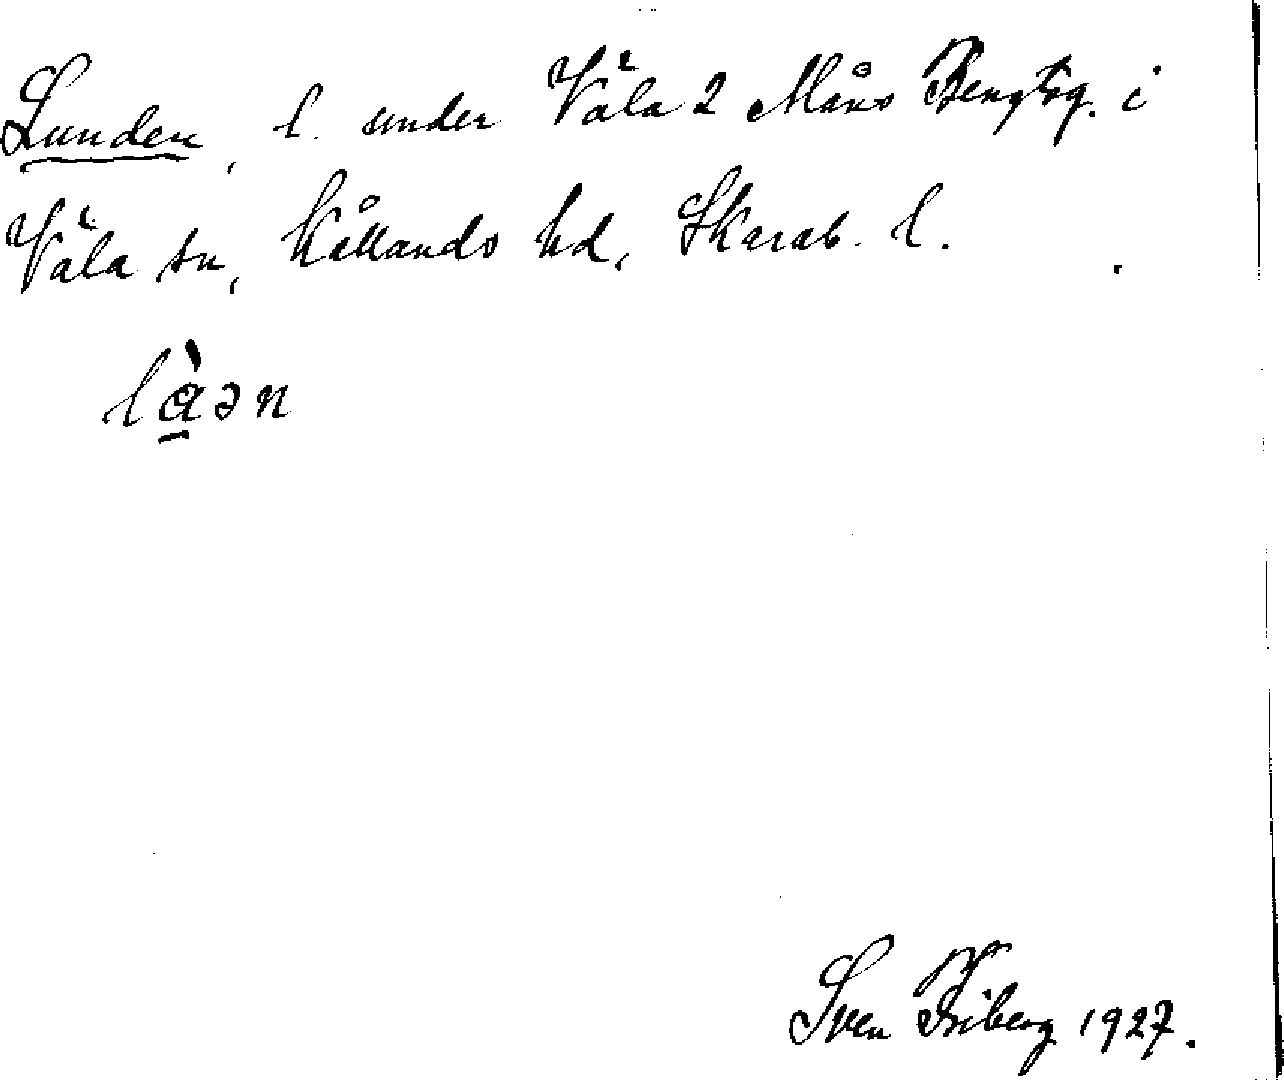 Lunden, l. under Väla 2 Måns Bengtsg. i
Väla sn, Kållands hd, Skarab. l.
là̱ən
Sven Friberg 1927.